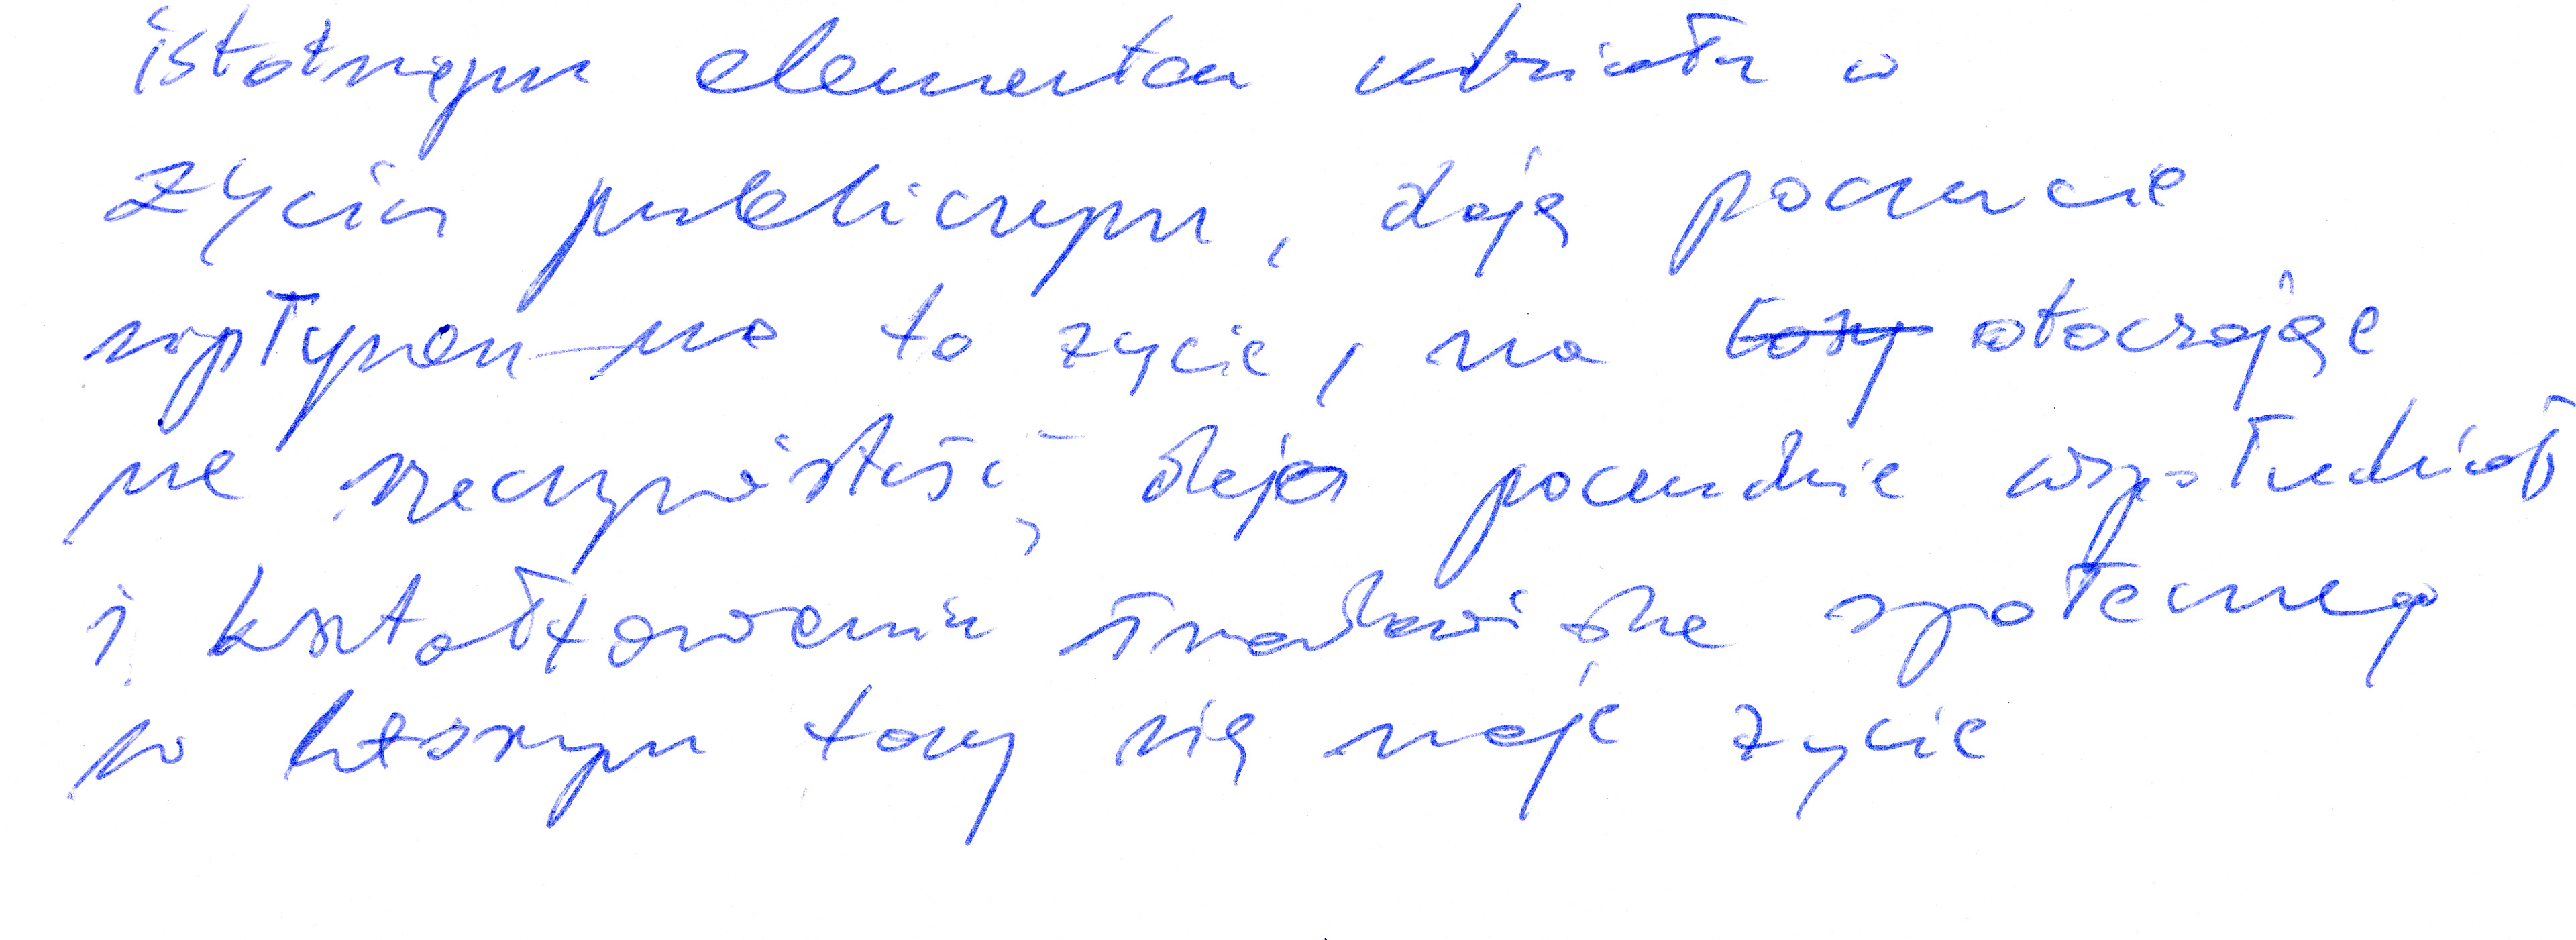 istotnym elementem udziału w
życiu publicznym, dają poczucie
wpływu na to życie, na otoczają̨ce
mnie rzeczywistość, daje poczucie współudziału
i kształtowania środowiska społecznego
w którym toczy się moje życie